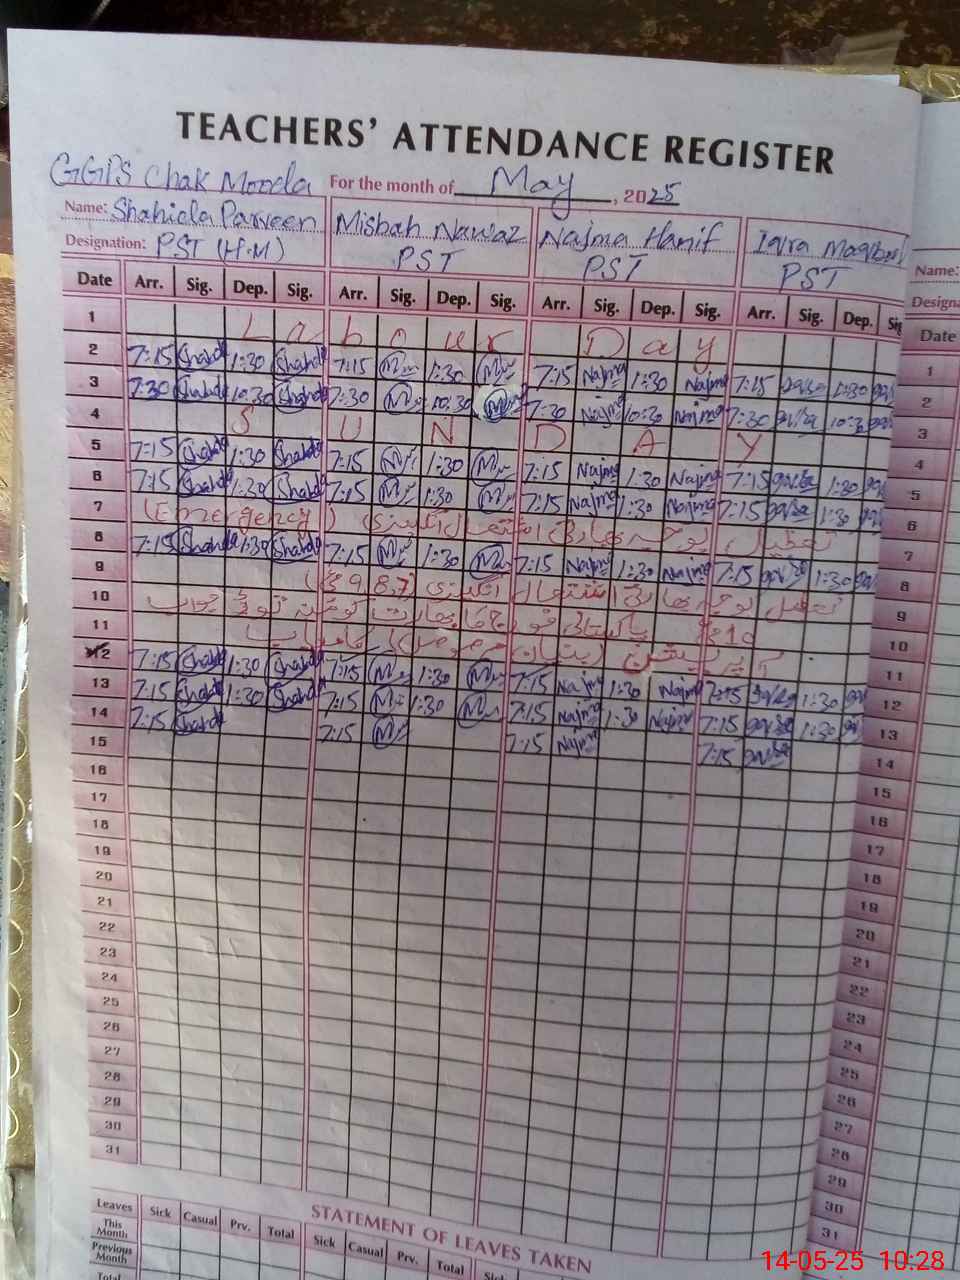 TEACHERS' ATTENDANCE REGISTER
GGPS Chak Mooda For the month of May, 2025
Name: Shahida Parveen Misbah Nawaz Najma Hanif Iqra Name:
Designation: PST (H.M) PST PST PST Designa
Date Arr. Sig. Dep. Sig. Arr. Sig. Dep. Sig. Arr. Sig. Dep. Sig. Arr. Sig. Dep. Sig Date
1 Labour Day 1
2 7:15 Shahida 1:30 Shahida 7:15 1:30 7:15 Najma 1:30 Najma 7:15 1:30 2
3 7:30 Shahida 10:30 Shahida 7:30 10:30 7:30 Najma 10:30 Najma 7:30 10:30 3
4 SUNDAY 4
5 7:15 Shahida 1:30 Shahida 7:15 1:30 7:15 Najma 1:30 Najma 7:15 1:30 5
6 7:15 Shahida 1:30 Shahida 7:15 1:30 7:15 Najma 1:30 Najma 7:15 1:30 6
7 (Emergency) تعطیل بوجہ بھارتی اشتعال انگیزی 7
8 7:15 Shahida 1:30 Shahida 7:15 1:30 7:15 Najma 1:30 Najma 7:15 1:30 8
9 تعطیل بوجہ بھارتی اشتعال انگیزی (7,8,9 مئی) 9
10 پاکستانی فوج کا بھارت کو جواب 10
11 آپریشن بنیان مرصوص کامیاب 11
12 7:15 Shahida 1:30 Shahida 7:15 1:30 7:15 Najma 1:30 Najma 7:15 1:30 12
13 7:15 Shahida 1:30 Shahida 7:15 1:30 7:15 Najma 1:30 Najma 7:15 1:30 13
14 7:15 Shahida 7:15 7:15 Najma 7:15 14
15 15
16 16
17 17
18 18
19 19
20 20
21 21
22 22
23 23
24 24
25 25
26 26
27 27
28 28
29 29
30 30
31 31
STATEMENT OF LEAVES TAKEN
Leaves Sick Casual Prv. Total Sick Casual Prv. Total Sick
This Month
Previous Month
Total
14-05-25 10:28